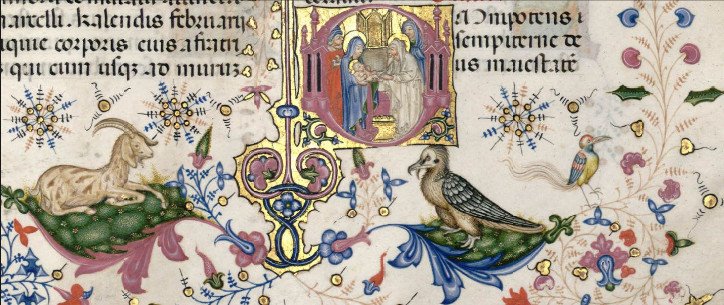 marcelli. Kalendis februarij
iquie corporis eius a
s qui cum usqz ad muruz
Ompotens
sempiterne de
us maiestate